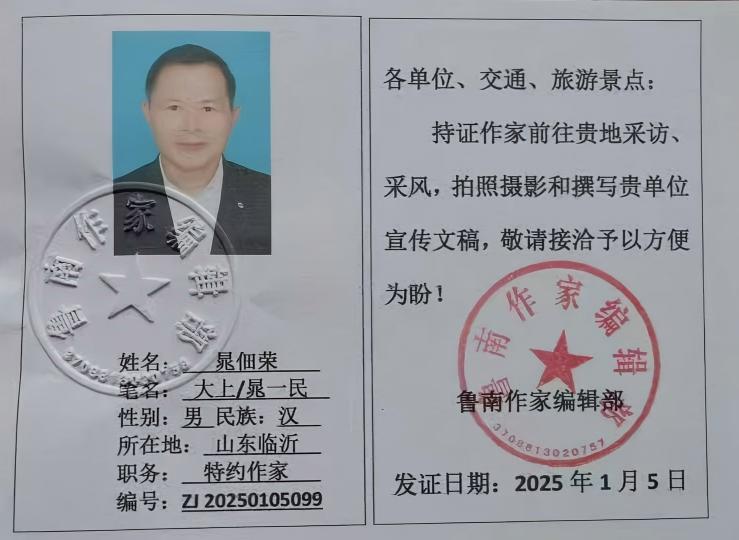 鲁南作家编辑部
姓名： 晁佃荣
笔名： 大上/晁一民
性别：男 民族：汉
所在地： 山东临沂
职务： 特约作家
编号：ZJ 20250105099
各单位、交通、旅游景点：
持证作家前往贵地采访、
采风，拍照摄影和撰写贵单位
宣传文稿，敬请接洽予以方便
为盼！
鲁南作家编辑部
鲁南作家编辑部
3708813020757
发证日期：2025 年 1 月 5 日